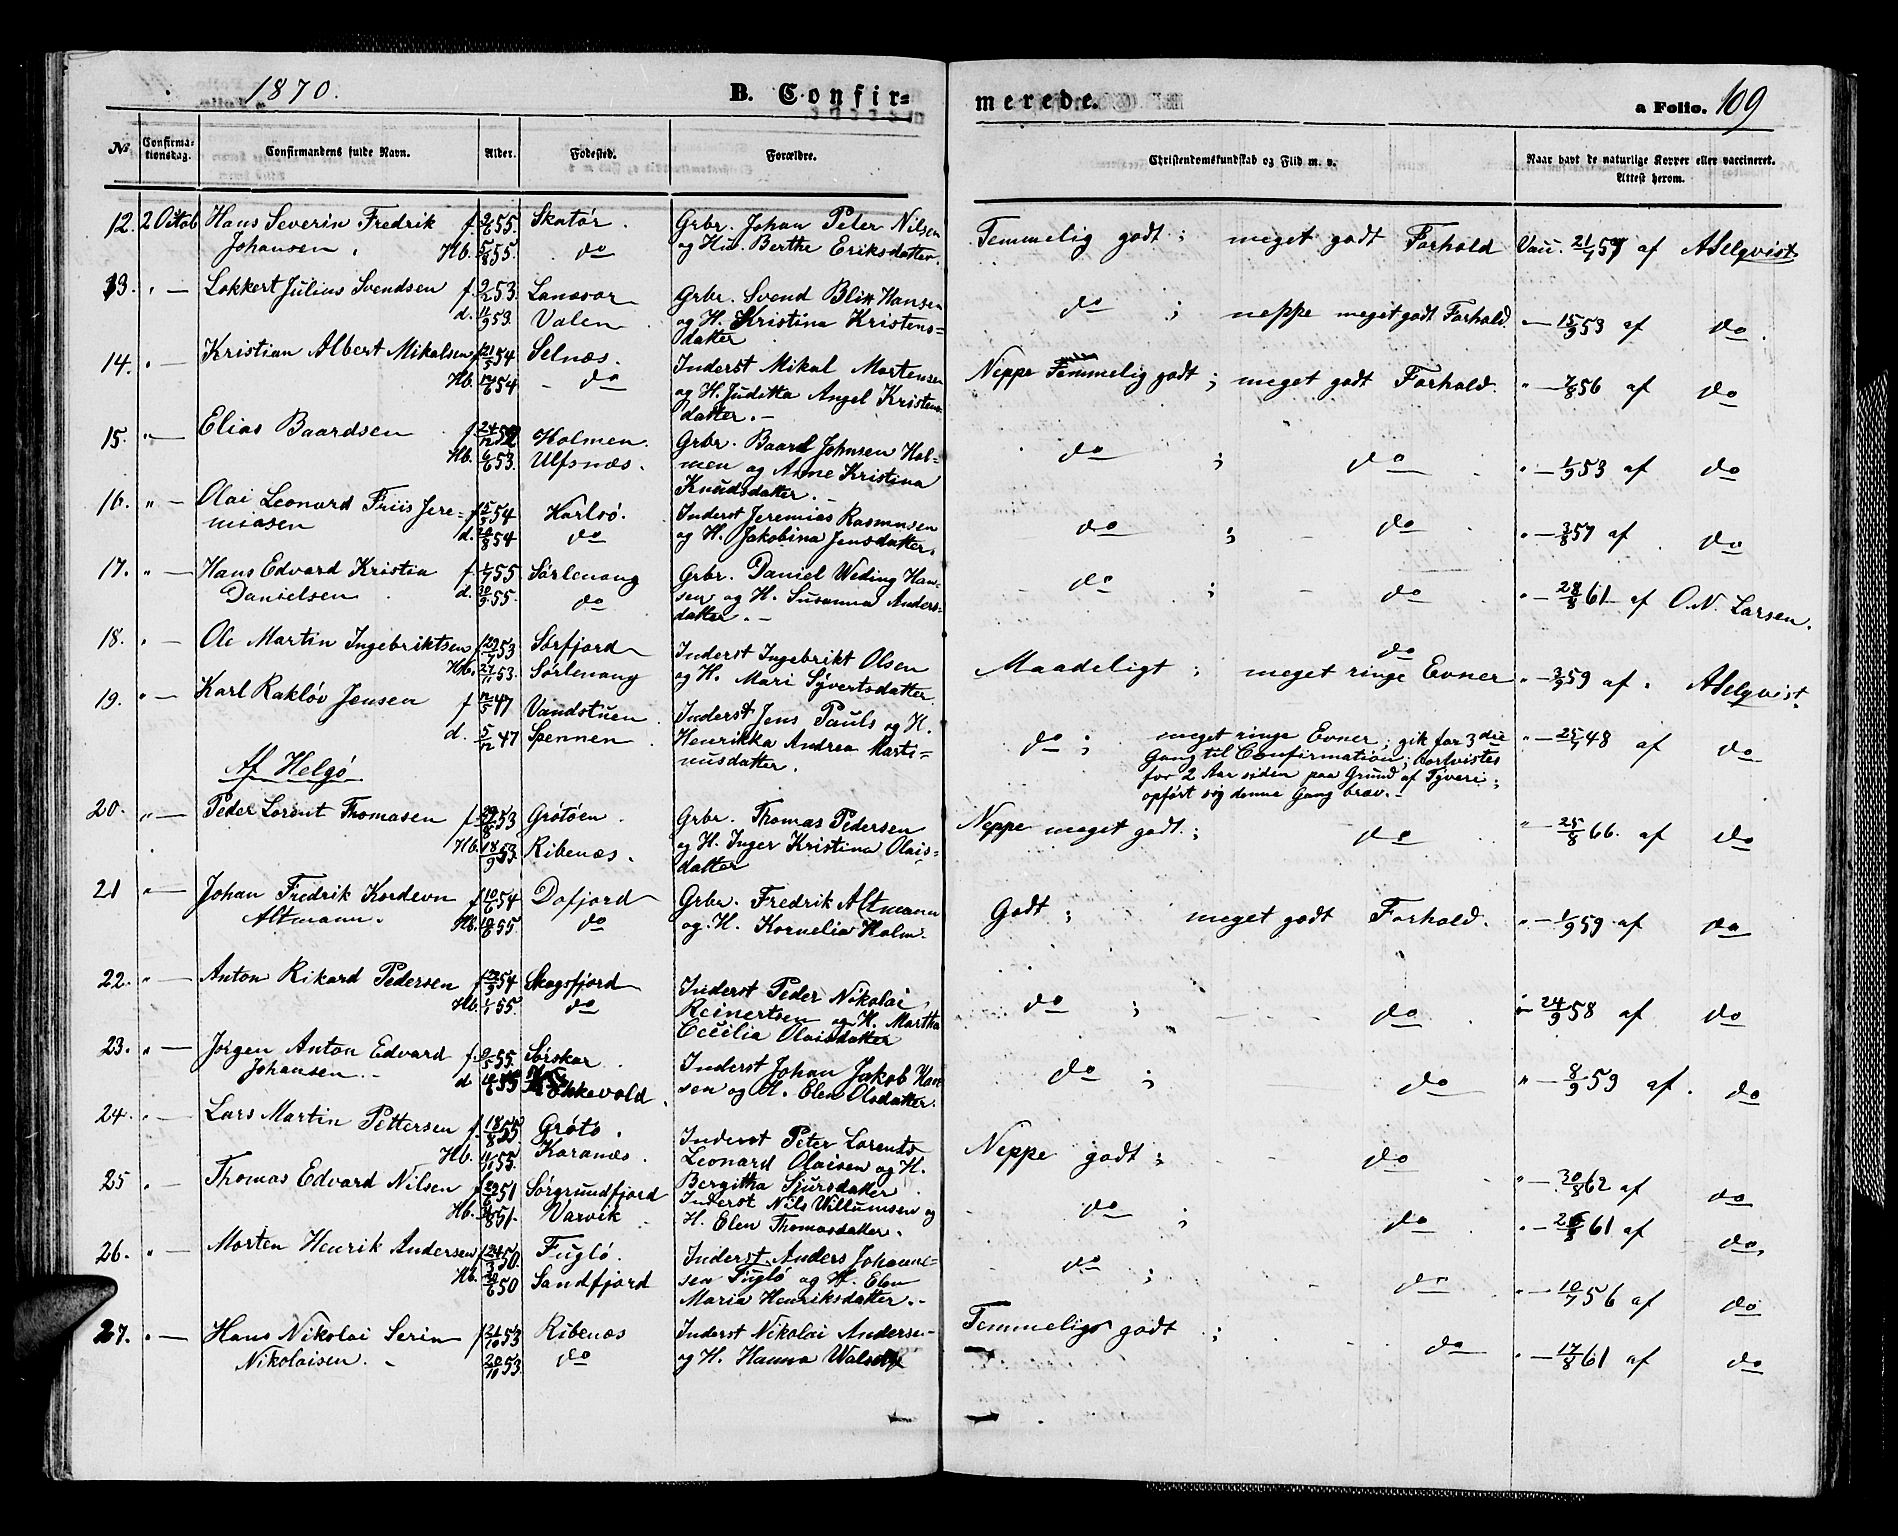 1870.
B. Confir=
merede.
a Folio. 109
No.
Confirma-
tionsdag.
Confirmandens fulde Navn.
Alder.
Fødested.
Forældre.
Christendomskundskab og Flid m. v.
Naar havt de naturlige Kopper eller vaccineret.
Attest herom.
12. 2 Octob Hans Severin Fredrik f. 2/6 55. Skatør. Grbr. Johan Peter Nilsen Temmelig godt; meget godt Forhold Vacc. 21/7 57 af A Selqvist
Johansen. Hb. 5/8 55. do og Hu Berthe Eriksdatter.
13. " — Lokkert Julius Svendsen f. 53. Lanesør Grbr. Svend Blix Hansen do ; neppe meget godt Forhold. — 15/9 53 af do.
d. 11/9 53. Valen og H. Kristina Kristens-
datter
14. " — Kristian Albert Mikalsen f 21/5 54 Selnæs. Inderst Mikal Mortensen Neppe Temmelig godt; meget godt Forhold. " — 7/8 56 af do
Hb. 54 do og H. Juditta Angel Kristens-
datter. —
15. " — Elias Baardsen f 24/12 52 Holmen. Grbr. Baard Johnsen Hol- do ; do " — 1/9 53 af do
Hb. 6/6 53. Ulfsnæs. men og Anne Kristina
Knudsdatter. —
16. " — Olai Leonard Friis Jere- f 15/5 54 Karlsø. Inderst Jeremias Rasmusen do ; do " — 3/8 57 af do
miasen d. 8 54 do og H. Jakobina Jensdatter.
17. " — Hans Edvard Kristia f 1/7 55 Sørlenang Grbr. Daniel Weding Han- do ; do " — 28/8 61 af O. N. Larsen.
Danielsen d. 30/9 55. do sen og H. Susanna Anders-
datter. —
18. " — Ole Martin Ingebriktsen f 53 Sørfjord Inderst Ingebrikt Olsen Maadeligt ; meget ringe Evner do " — 3/9 59 af A Selqvist.
Hb. 27/11 53. Sørlenang og H. Mari Syvertsdatter
19. " — Karl Rakløv Jensen f 12/5 47 Vandstuen Inderst Jens Pauls og H. do ; meget ringe Evner; gik for 3die " — 25/7 48 af do
d. 5/12 47 Spennen Henrikka Andrea Marti- Gang til Confirmation; bortvistes
nusdatter. for 2 Aar siden paa Grund af Tyveri;
opført sig denne Gang brav. —
Af Helgø
20. " — Peder Lorent Thomasen f 29/8 53 Grøtøen. Grbr. Thomas Pedersen Neppe meget godt. ; do " — 25/8 66. af do
Hb. 18/9 53. Ribenæs. og H. Inger Kristina Olais-
datter
21 " — Johan Fredrik Kordevn f 10/6 54 Dafjord Grbr. Fredrik Altmann Godt ; meget godt Forhold. " — 1/9 59. af do
Altmann. Hb. 55 do og. H. Kornelia Holm.
22. " — Anton Rikard Pedersen f 54 Skogsfjord Inderst Peder Nikolai do ; do " — 24/9 58 af do
Hb. 1/1 55. do Reinertsen og H. Martha
Cecilia Olaisdatter
23. " — Jørgen Anton Edvard f. 55. Sørskar Inderst Johan Jakob Han- do ; do " — 8/9 59 af. do
Johansen. — d 55 Løkkevold. sen og H. Elen Olsdatter.
24. " — Lars Martin Pettersen f. 18/8 54 Grøtø. Inderst Peter Lorents Neppe godt ; do " — 20/8 62 af do
Hb. 55. Karanæs. Leonard Olaisen og H.
Bergitha Sjursdatter
25 " — Thomas Edvard Nilsen f 51 Sørgrundfjord Inderst Nils Villumsen og do ; do " — 61 af do,
Hb. 51. Varvik H. Elen Thomasdatter.
26. " — Morten Henrik Andersen f 50. Fuglø. Inderst Anders Johanne- do ; do " — 10/7 56 af do
Hb. 50 Sandfjord sen Fuglø og H. Elen
Maria Henriksdatter. —
27. " — Hans Nikolai Serin f 53 Ribenæs Inderst Nikolai Andersen- Temmelig godt ; do " — 17/8 61 af do
Nikolaisen. — 20/10 53. do og H. Hanna